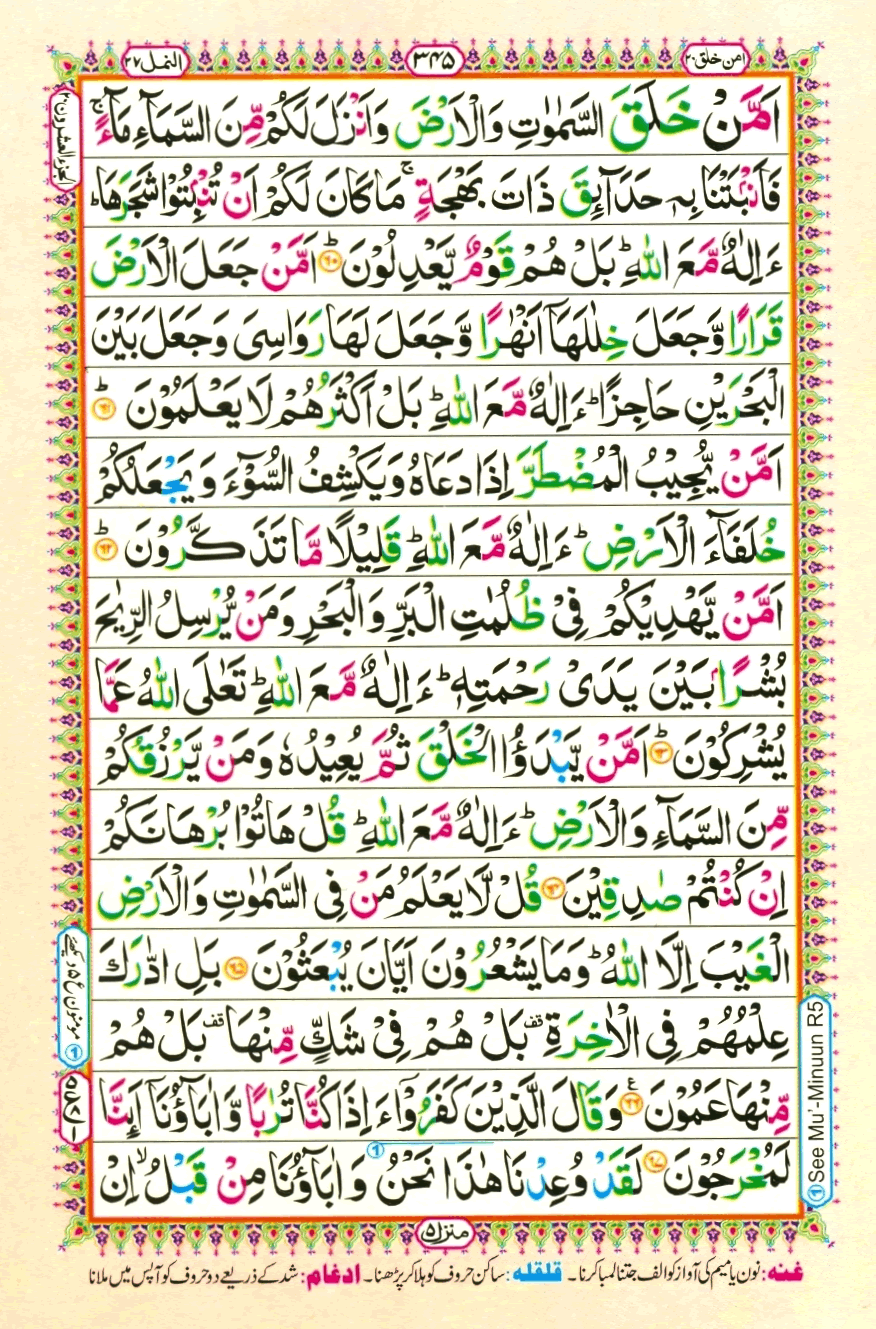 امن خلق ۲۰
۳۴۵
النمل ۲۷
اَمَّنْ خَلَقَ السَّمٰوٰتِ وَالْاَرْضَ وَاَنْزَلَ لَكُمْ مِّنَ السَّمَآءِ مَآءً ۚ
فَاَنْۢبَتْنَا بِهٖ حَدَآئِقَ ذَاتَ بَهْجَةٍ ۚ مَا كَانَ لَكُمْ اَنْ تُنْۢبِتُوْا شَجَرَهَا ؕ
ءَاِلٰهٌ مَّعَ اللّٰهِ ؕ بَلْ هُمْ قَوْمٌ يَّعْدِلُوْنَ ؕ ﴿۶۰﴾ اَمَّنْ جَعَلَ الْاَرْضَ
قَرَارًا وَّجَعَلَ خِلٰلَهَاۤ اَنْهٰرًا وَّجَعَلَ لَهَا رَوَاسِىَ وَجَعَلَ بَيْنَ
الْبَحْرَيْنِ حَاجِزًا ؕ ءَاِلٰهٌ مَّعَ اللّٰهِ ؕ بَلْ اَكْثَرُهُمْ لَا يَعْلَمُوْنَ ؕ ﴿۶۱﴾
اَمَّنْ يُّجِيْبُ الْمُضْطَرَّ اِذَا دَعَاهُ وَيَكْشِفُ السُّوْٓءَ وَيَجْعَلُكُمْ
خُلَفَآءَ الْاَرْضِ ؕ ءَاِلٰهٌ مَّعَ اللّٰهِ ؕ قَلِيْلًا مَّا تَذَكَّرُوْنَ ؕ ﴿۶۲﴾
اَمَّنْ يَّهْدِيْكُمْ فِىْ ظُلُمٰتِ الْبَرِّ وَالْبَحْرِ وَمَنْ يُّرْسِلُ الرِّيٰحَ
بُشْرًاۢ بَيْنَ يَدَىْ رَحْمَتِهٖ ؕ ءَاِلٰهٌ مَّعَ اللّٰهِ ؕ تَعٰلَى اللّٰهُ عَمَّا
يُشْرِكُوْنَ ؕ ﴿۶۳﴾ اَمَّنْ يَّبْدَؤُا الْخَلْقَ ثُمَّ يُعِيْدُهٗ وَمَنْ يَّرْزُقُكُمْ
مِّنَ السَّمَآءِ وَالْاَرْضِ ؕ ءَاِلٰهٌ مَّعَ اللّٰهِ ؕ قُلْ هَاتُوْا بُرْهَانَكُمْ
اِنْ كُنْتُمْ صٰدِقِيْنَ ﴿۶۴﴾ قُلْ لَّا يَعْلَمُ مَنْ فِى السَّمٰوٰتِ وَالْاَرْضِ
الْغَيْبَ اِلَّا اللّٰهُ ؕ وَمَا يَشْعُرُوْنَ اَيَّانَ يُبْعَثُوْنَ ﴿۶۵﴾ بَلِ ادّٰرَكَ
عِلْمُهُمْ فِى الْاٰخِرَةِ قف بَلْ هُمْ فِىْ شَكٍّ مِّنْهَا قف بَلْ هُمْ
مِّنْهَا عَمُوْنَ ﴿۶۶﴾ ع وَقَالَ الَّذِيْنَ كَفَرُوْٓا ءَاِذَا كُنَّا تُرٰبًا وَّاٰبَآؤُنَاۤ اَئِنَّا
لَمُخْرَجُوْنَ ﴿۶۷﴾ لَقَدْ وُعِدْنَا هٰذَا نَحْنُ وَاٰبَآؤُنَا مِنْ قَبْلُ ۙ اِنْ
الجزء العشرون ۲۰
① مومنون ع ۵ دیکھئے
① See Mu'-Minuun R5
منزل ۵
غنہ: نون یا میم کی آواز کو الف جتنا لمبا کرنا۔ قلقلہ: ساکن حروف کو ہلا کر پڑھنا۔ ادغام: شد کے ذریعے دو حروف کو آپس میں ملانا